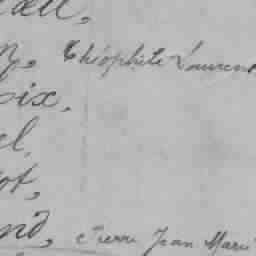 Théophile Laurent
oix,
el,
ot,
nd, Pierre Jean Marie